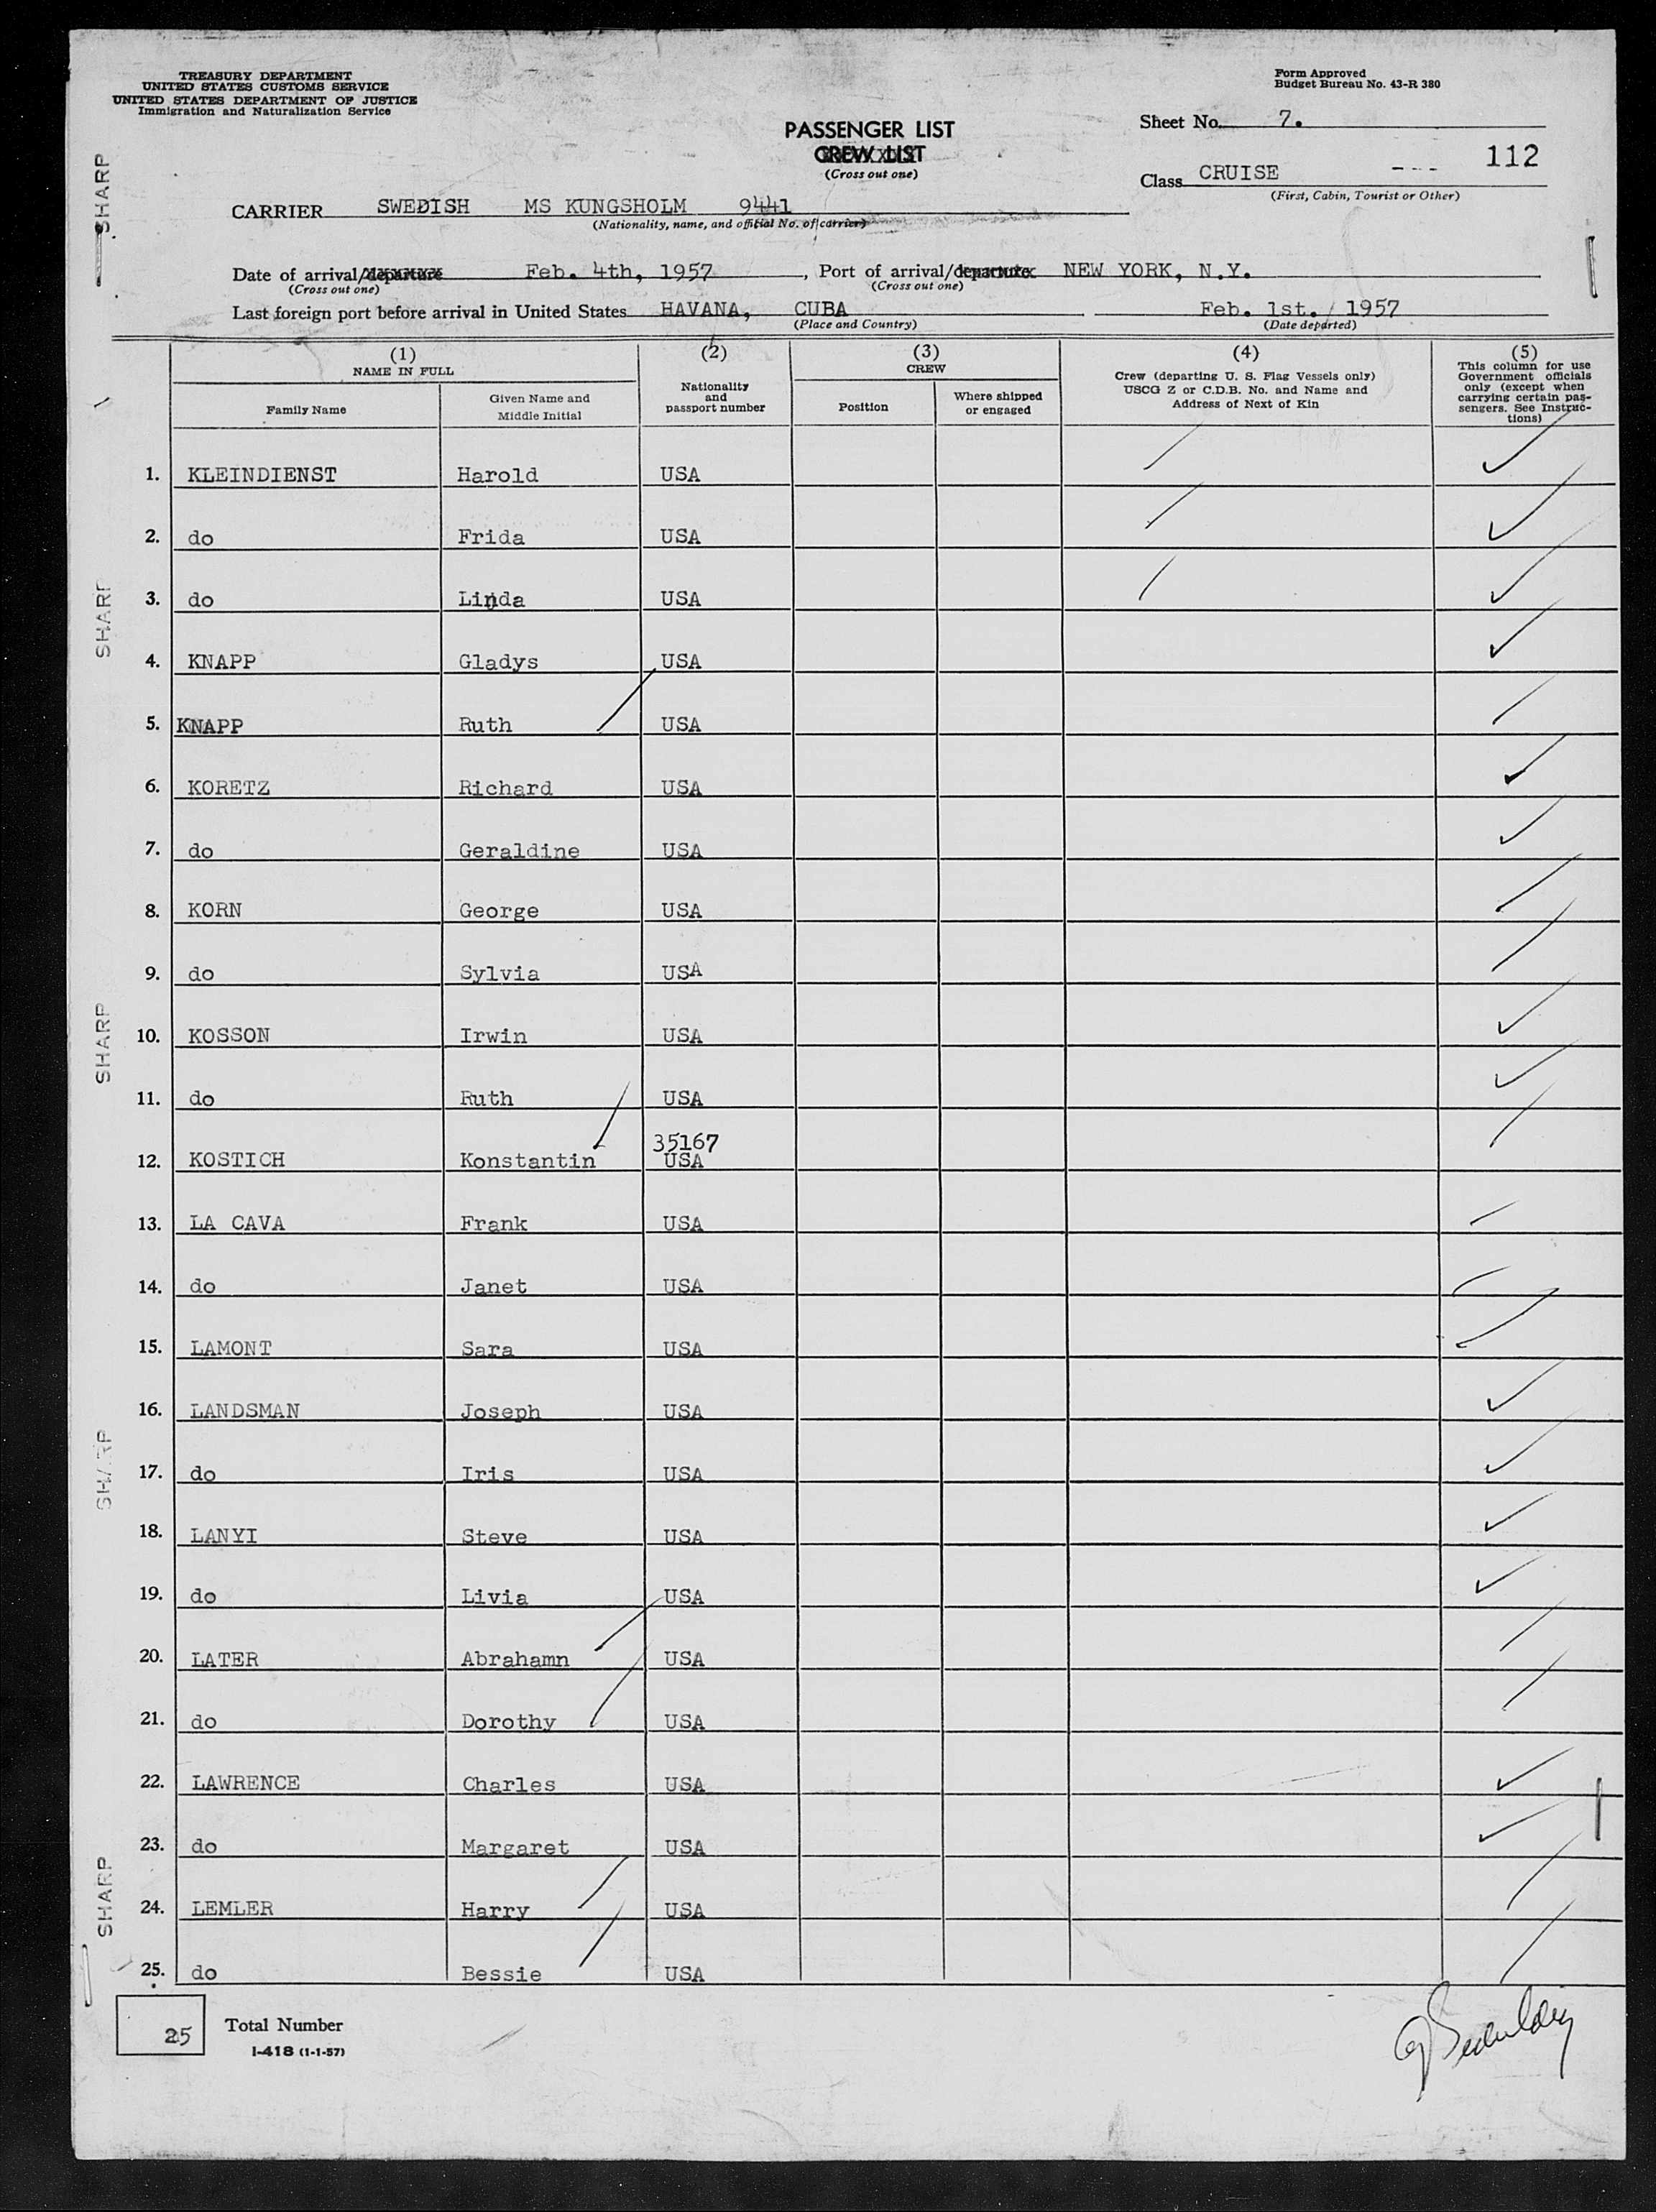 TREASURY DEPARTMENT
UNITED STATES CUSTOMS SERVICE
UNITED STATES DEPARTMENT OF JUSTICE
Immigration and Naturalization Service
Form Approved
Budget Bureau No. 43-R 380
PASSENGER LIST
CREW LIST
(Cross out one)
Sheet No. 7.
112
Class CRUISE ---
(First, Cabin, Tourist or Other)
CARRIER SWEDISH MS KUNGSHOLM 9441
(Nationality, name, and official No. of carrier)
Date of arrival/departure Feb. 4th, 1957, Port of arrival/departure NEW YORK, N.Y.
(Cross out one) (Cross out one)
Last foreign port before arrival in United States HAVANA, CUBA Feb. 1st. 1957
(Place and Country) (Date departed)
(1) (2) (3) (4) (5)
NAME IN FULL
Family Name
Given Name and Middle Initial
Nationality and passport number
CREW
Position
Where shipped or engaged
Crew (departing U. S. Flag Vessels only)
USCG Z or C.D.B. No. and Name and
Address of Next of Kin
This column for use
Government officials
only (except when
carrying certain pas-
sengers. See Instruc-
tions)
1. KLEINDIENST Harold USA
2. do Frida USA
3. do Linda USA
4. KNAPP Gladys USA
5. KNAPP Ruth USA
6. KORETZ Richard USA
7. do Geraldine USA
8. KORN George USA
9. do Sylvia USA
10. KOSSON Irwin USA
11. do Ruth USA
35167
12. KOSTICH Konstantin USA
13. LA CAVA Frank USA
14. do Janet USA
15. LAMONT Sara USA
16. LANDSMAN Joseph USA
17. do Iris USA
18. LANYI Steve USA
19. do Livia USA
20. LATER Abrahamn USA
21. do Dorothy USA
22. LAWRENCE Charles USA
23. do Margaret USA
24. LEMLER Harry USA
25. do Bessie USA
25 Total Number
I-418 (1-1-57)
SHARP
SHARP
SHARP
SHARP
SHARP